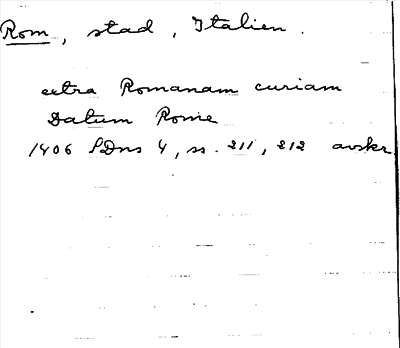 Rom, stad, Italien.
extra Romanam curiam
Datum Rome
1406 SDns 4, ss. 211, 212 avskr.